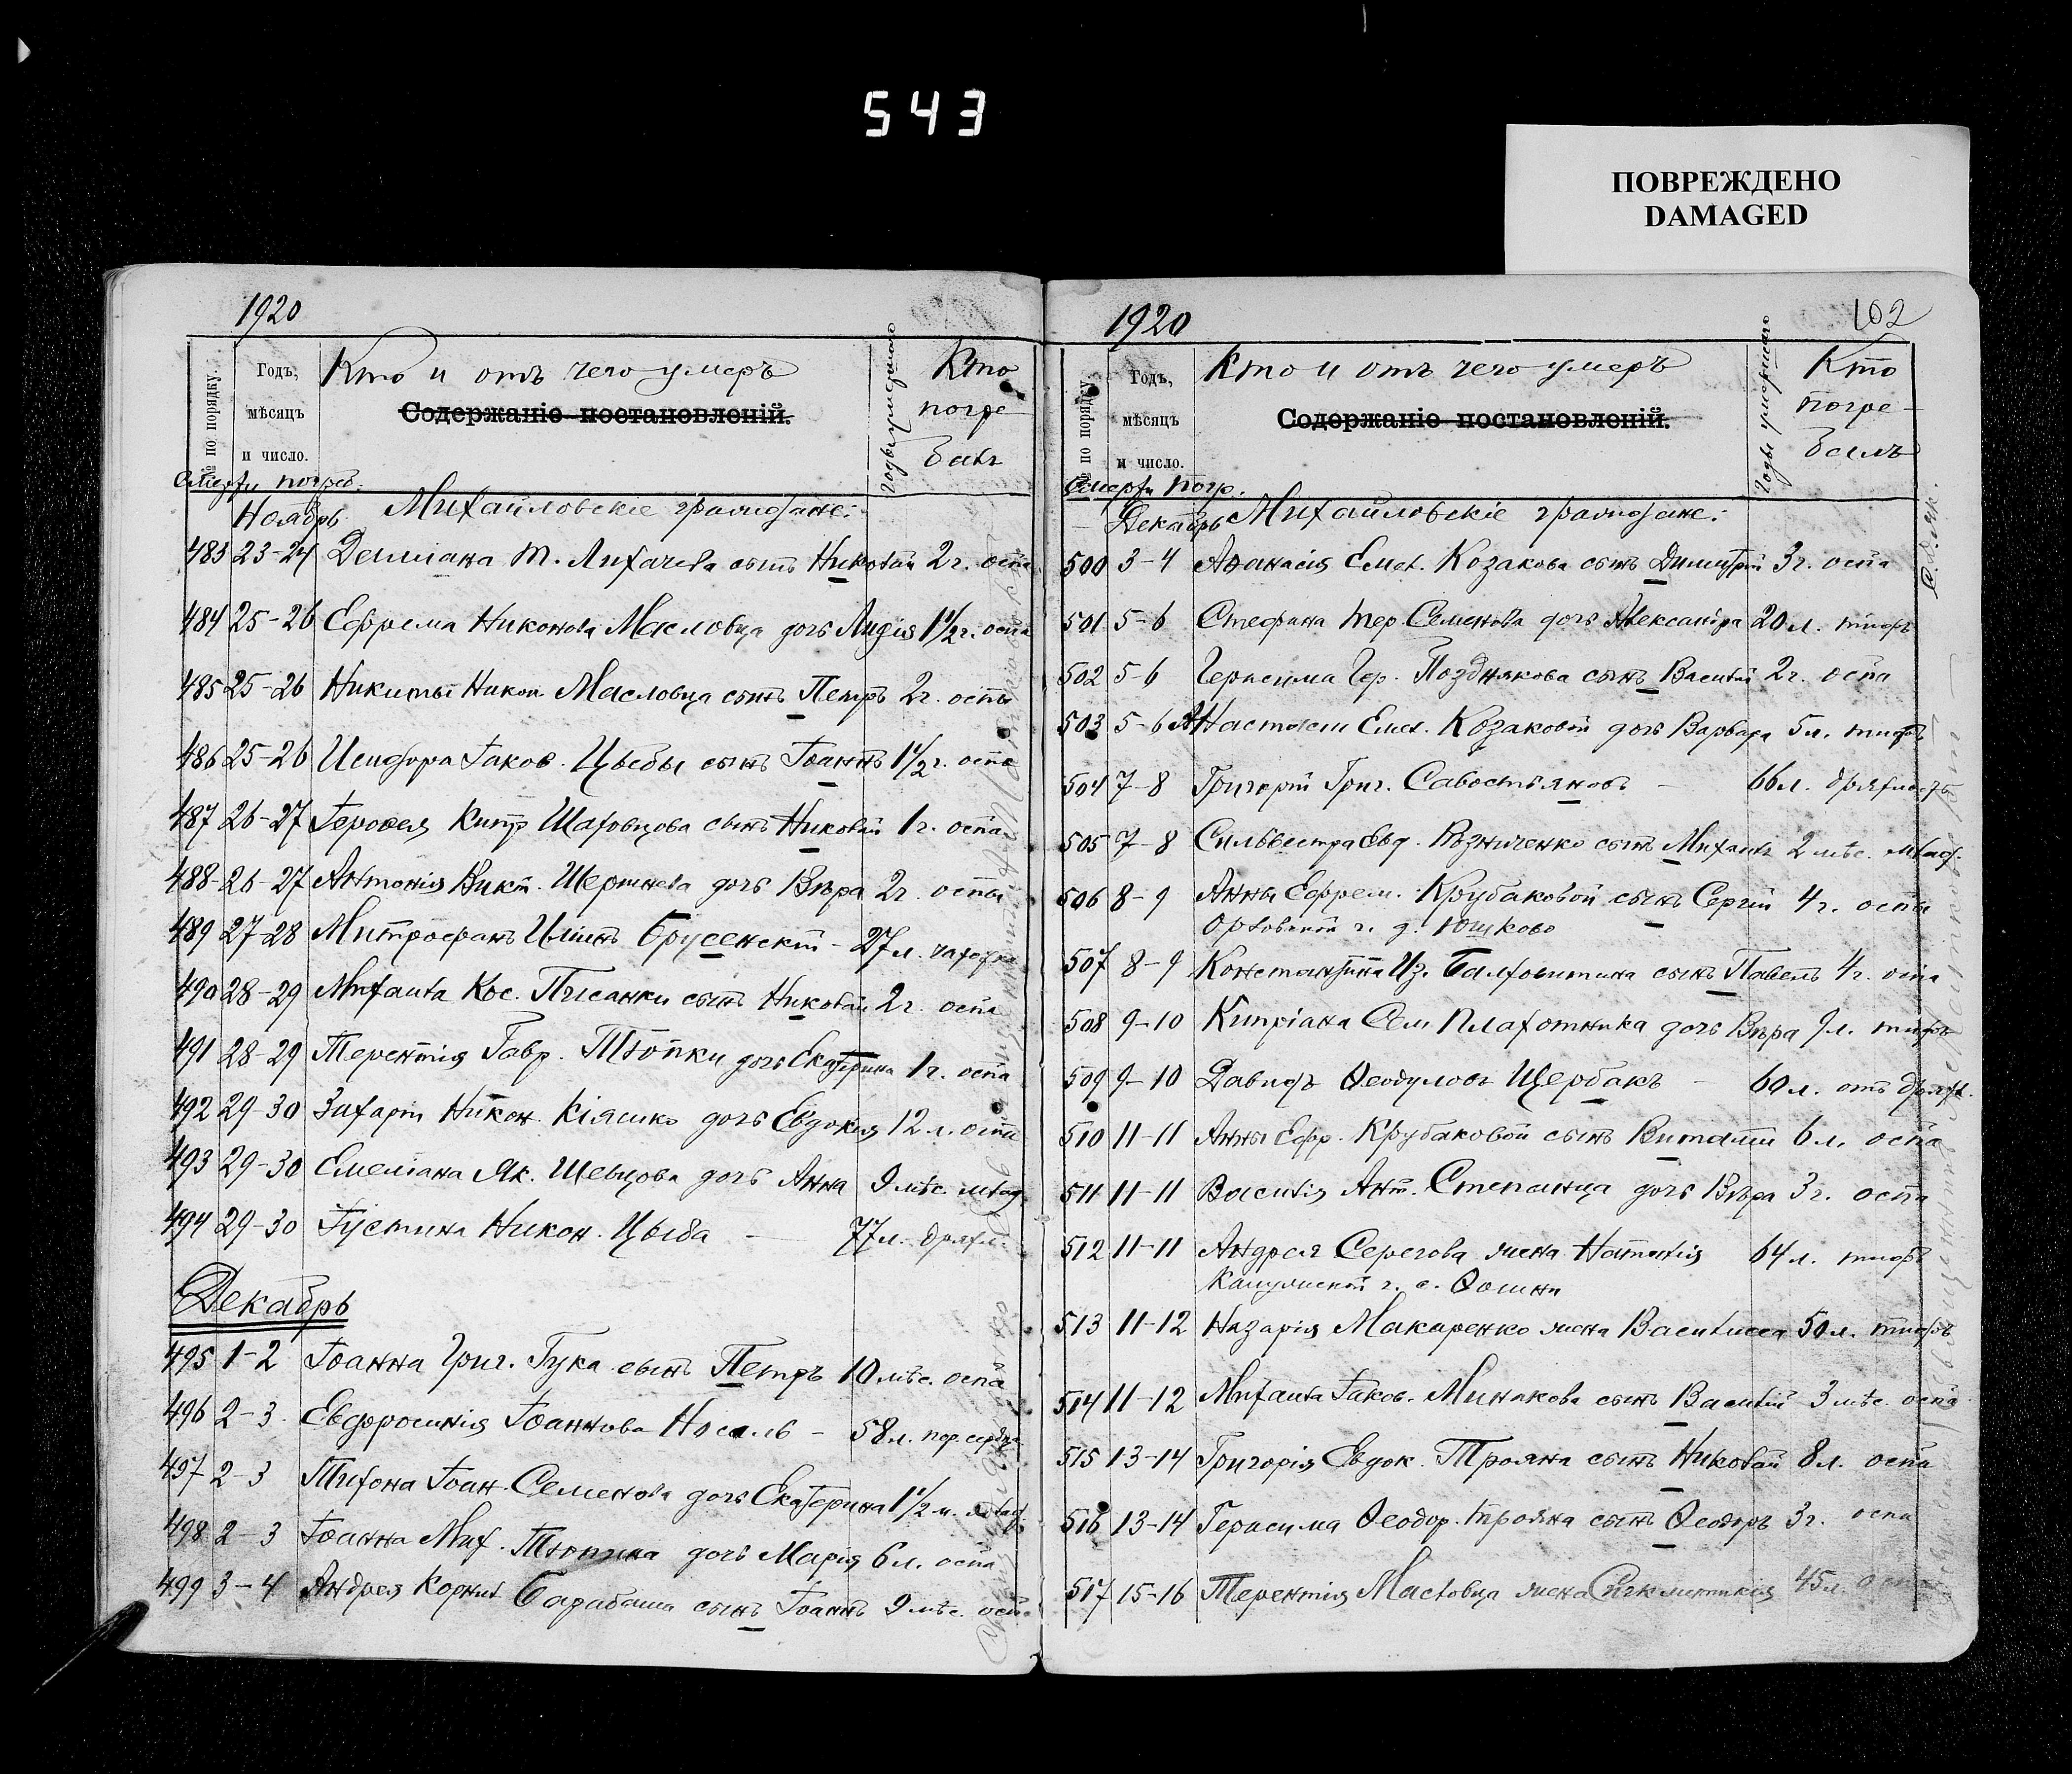 543
ПОВРЕЖДЕНО
DAMAGED
1920
№ по порядку.
Годъ,
мѣсяцъ
и число.
Смерти погреб.
Кто и отъ чего умеръ
Содержаніе постановленій.
Годы умершаго
Кто
погре-
балъ
Ноябрь Михайловскіе граждане:
483 23-24 Деміана Т. Лихачева сынъ Николай 2 г. оспа
484 25-26 Ефрема Никонова Масловца дочь Лидія 1 1/2 г. оспа
485 25-26 Никиты Никон. Масловца сынъ Петръ 2 г. оспы
486 25-26 Исидора Іаков. Цыбы сынъ Іоаннъ 1 1/2 г. оспа
487 26-27 Іероѳея Кипр Шаховцова сынъ Николай 1 г. оспа
488 26-27 Антонія Викт. Шершнева дочь Вѣра 2 г. оспы
489 27-28 Митрофанъ Иліинъ Брусенскій - 27 л. чахотка
490 28-29 Михаила Кос. Писанки сынъ Николай 2 г. оспа
491 28-29 Терентія Гавр. Тюпки дочь Екатерина 1 г. оспа
492 29-30 Захарія Никон. Кіяшко дочь Евдокія 12 л. оспа
493 29-30 Емеліана Як. Шевцова дочь Анна 9 мѣс. млад.
494 29-30 Іустина Никон. Цыба - 77 л. дряхл.
Декабрь
495 1-2 Іоанна Григ. Гука сынъ Петръ 10 мѣс. оспа
496 2-3 Евфросинія Іоаннова Носаль - 58 л. пор. сердца
497 2-3 Тихона Іоан. Семенова дочь Екатерина 1 1/2 м. млад.
498 2-3 Іоанна Мих. Тюпина дочь Марія 6 л. оспа
499 3-4 Андрея Корнил Барабаша сынъ Іоаннъ 9 мѣс. оспа
1920
102
№ по порядку.
Годъ,
мѣсяцъ
и число.
Смерти погр.
Кто и отъ чего умеръ
Содержаніе постановленій.
Годы умершаго
Кто
погре-
балъ
Декабрь Михайловскіе граждане:
500 3-4 Аѳанасія Емел. Козакова сынъ Димитрій 3 г. оспа
501 5-6 Стефана Тер. Семенова дочь Александра 20 л. тифъ
502 5-6 Герасима Гер. Позднякова сынъ Василій 2 г. оспа
503 5-6 Анастасіи Емел. Козаковой дочь Варвара 5 л. тифъ
504 7-8 Григорій Григ. Савостьяновъ - 66 л. дряхлость
505 7-8 Сильвестра Евд. Рѣзниченко сынъ Михаилъ 2 мѣс. млад.
506 8-9 Анны Ефрем. Крубаковой сынъ Сергій 4 г. оспы
Орловской г. д. Юшково
507 8-9 Константина Из. сынъ Павелъ 4 г. оспа
508 9-10 Кипріана Сем Плахотника дочь Вѣра 9 л. тифъ
509 9-10 Давидъ Ѳеодуловъ Щербакъ - 60 л. отъ дряхл.
510 11-11 Анны Ефр. Крубаковой сынъ Виталій 6 л. оспа
511 11-11 Василія Ант. Степанца дочь Вѣра 3 г. оспа
512 11-11 Андрея Серегова жена Наталія 64 л. тифъ
Калужской г. с. Ѳошни
513 11-12 Назарія Макаренко жена Василисса 50 л. тифъ
514 11-12 Михаила Іаков. Минакова сынъ Василій 3 мѣс. оспа
515 13-14 Григорія Евдок. Трояна сынъ Николай 8 л. оспа
516 13-14 Герасима Ѳеодор. Трояна сынъ Ѳеодоръ 3 г. оспа
517 15-16 Терентія Масловца жена Сигклитикія 45 л. оспа